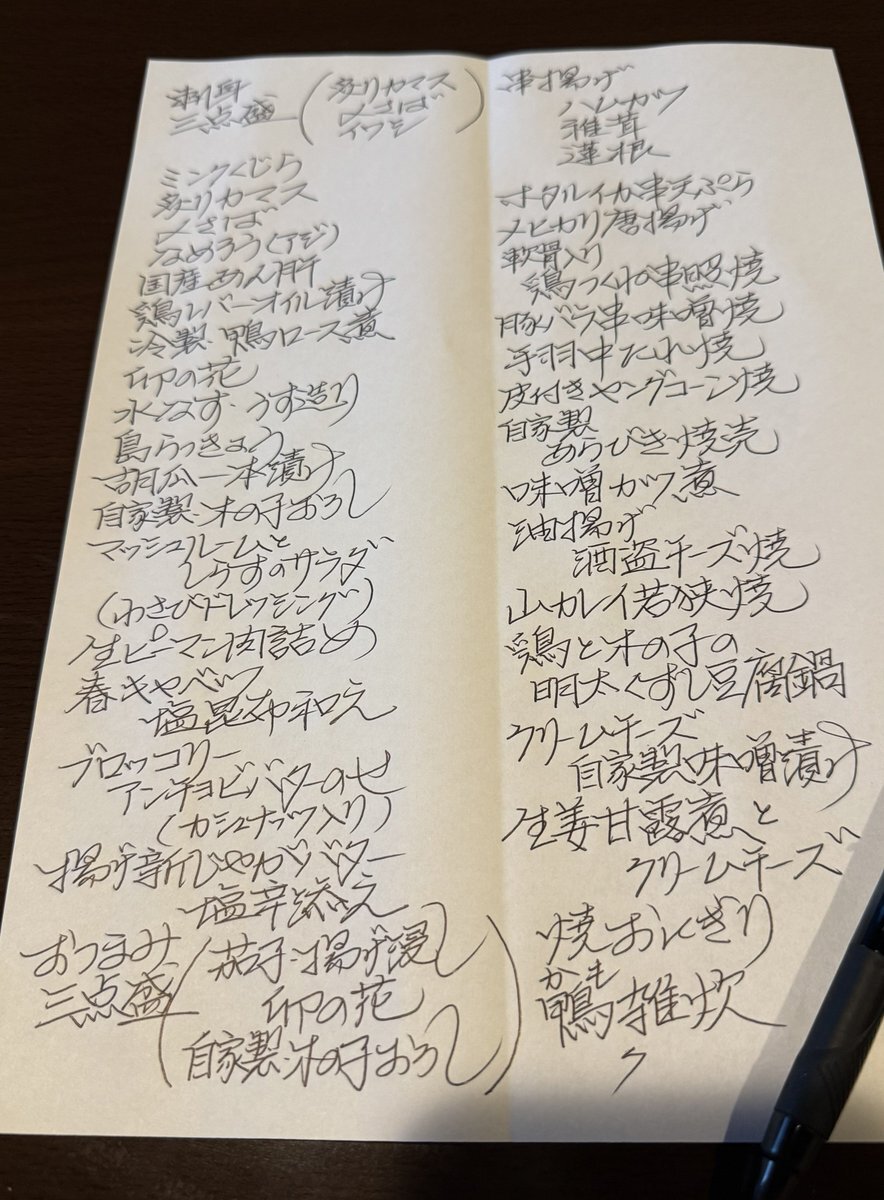 刺身
三点盛
(炙りカマス
〆さば
イワシ)
ミンクくじら
炙りカマス
〆さば
なめろう(アジ)
国産あん肝
鶏レバーオイル漬け
冷製・鴨ロース煮
卯の花
水なす・うす造り
島らっきょう
胡瓜一本漬け
自家製・木の子おろし
マッシュルームと
しらすのサラダ
(わさびドレッシング)
生ピーマン肉詰め
春キャベツ
塩昆布和え
ブロッコリー
アンチョビバターのせ
(カシュナッツ入り)
揚げ新じゃがバター
塩辛と添え
おつまみ
三点盛
(茄子・揚げ浸し
卯の花
自家製・木の子おろし)
串揚げ
ハムカツ
椎茸
蓮根
ホタルイカ串天ぷら
メヒカリ唐揚げ
軟骨入り
鶏つくね串照焼
豚バラ串味噌焼
手羽中たれ焼
皮付きヤングコーン焼
自家製
あらびき焼売
味噌カツ煮
油揚げ
酒盗チーズ焼
山カレイ若狭焼
鶏と木の子の
明太くずし豆腐鍋
クリームチーズ
自家製味噌漬け
生姜甘露煮と
クリームチーズ
焼おにぎり
かも
鴨雑炊